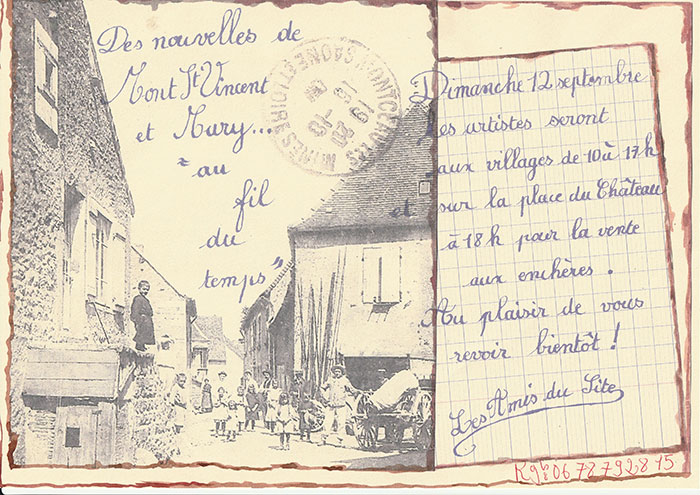 Des nouvelles de
Mont St Vincent
et Mary...
"au
fil
du
temps"
MONTCEAU LES MINES
SAONE ET LOIRE
Dimanche 12 septembre
les artistes seront
aux villages de 10 à 17h
et sur la place du Château
à 18h pour la vente
aux enchères.
Au plaisir de vous
revoir bientôt !
Les Amis du Site
0678792815